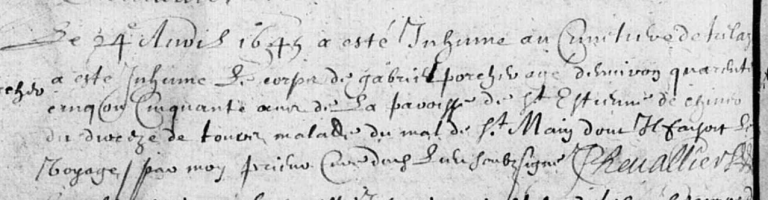 Le 24e Auvil 1645 a esté Inhumé au Cimetiere de
a esté Inhumé Le corps de gabriel porcher agé denviron quarente
cinq ou Cinquante ans de La paroisse de St Estienne de
du dioceze de tours malade du mal de St Main dont Il faisoit Le
Voyage / par moy prieur Curé dud Lieu soubsigné Chevallier